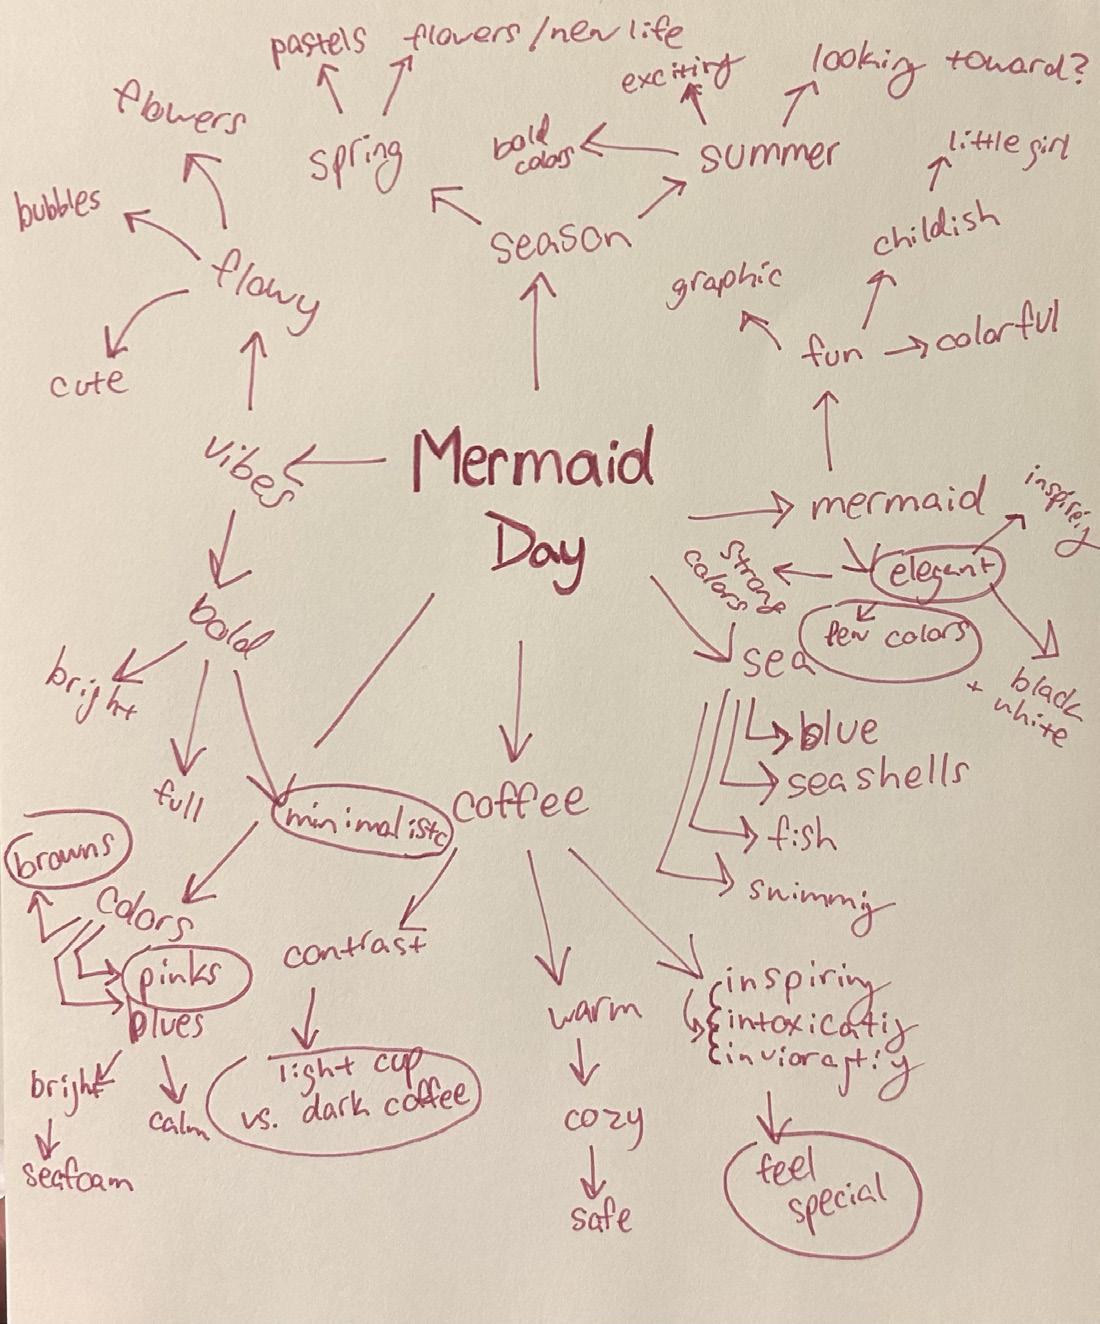 pastels
flowers/new life
exciting
looking toward?
flowers
spring
bold
colors
summer
little girl
bubbles
season
childish
flowy
graphic
fun
colorful
cute
vibes
Mermaid
Day
mermaid
inspiring
strong
colors
elegant
few colors
bold
sea
black
+ white
bright
blue
seashells
full
minimalistc
coffee
fish
browns
swimmig
colors
contrast
pinks
inspiring
blues
warm
intoxicatig
bright
light cup
vs. dark coffee
calm
cozy
seafoam
feel
special
safe